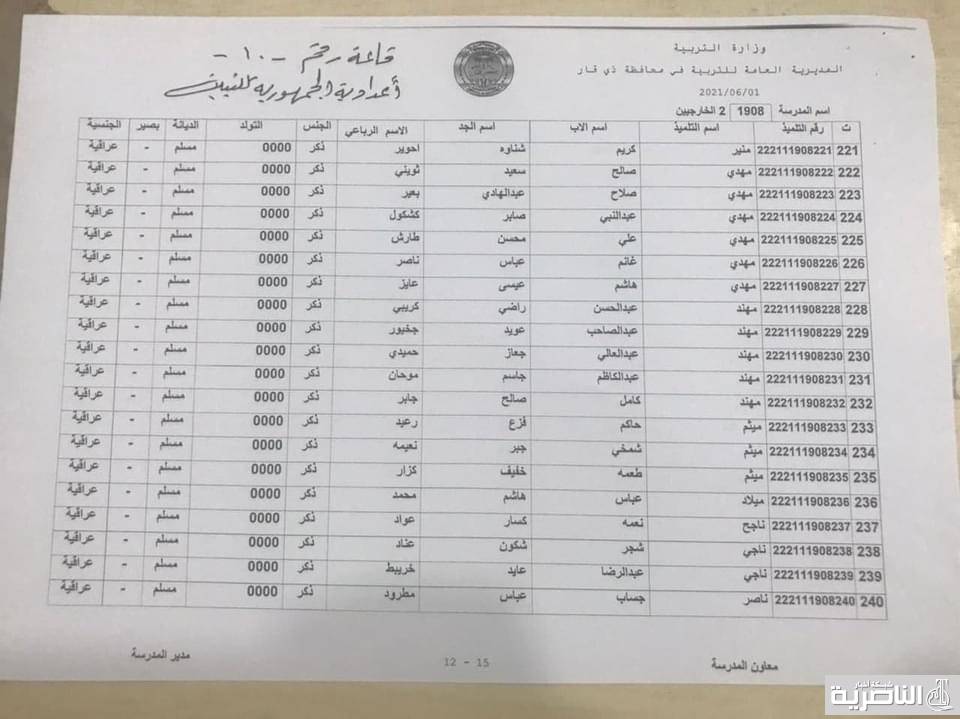 وزارة التربية
المديرية العامة للتربية في محافظة ذي قار
2021/06/01
قاعة رقم - ١٠ -
أعدادية الجمهورية للبنين
اسم المدرسة 1908 2 الخارجيين
ت رقم التلميذ اسم التلميذ اسم الاب اسم الجد الاسم الرباعي الجنس التولد الديانة بصير الجنسية
221 222111908221 منير كريم شناوه احوير ذكر 0000 مسلم - عراقية
222 222111908222 مهدي صالح سعيد ثويني ذكر 0000 مسلم - عراقية
223 222111908223 مهدي صلاح عبدالهادي بعير ذكر 0000 مسلم - عراقية
224 222111908224 مهدي عبدالنبي صابر كشكول ذكر 0000 مسلم - عراقية
225 222111908225 مهدي علي محسن طارش ذكر 0000 مسلم - عراقية
226 222111908226 مهدي غانم عباس ناصر ذكر 0000 مسلم - عراقية
227 222111908227 مهدي هاشم عيسى عايز ذكر 0000 مسلم - عراقية
228 222111908228 مهند عبدالحسن راضي كريبي ذكر 0000 مسلم - عراقية
229 222111908229 مهند عبدالصاحب عويد جخيور ذكر 0000 مسلم - عراقية
230 222111908230 مهند عبدالعالي جعاز حميدي ذكر 0000 مسلم - عراقية
231 222111908231 مهند عبدالكاظم جاسم موحان ذكر 0000 مسلم - عراقية
232 222111908232 مهند كامل صالح جابر ذكر 0000 مسلم - عراقية
233 222111908233 ميثم حاكم فزع رعيد ذكر 0000 مسلم - عراقية
234 222111908234 ميثم شمخي جبر نعيمه ذكر 0000 مسلم - عراقية
235 222111908235 ميثم طعمه خفيف كزار ذكر 0000 مسلم - عراقية
236 222111908236 ميلاد عباس هاشم محمد ذكر 0000 مسلم - عراقية
237 222111908237 ناجح نعمه كسار عواد ذكر 0000 مسلم - عراقية
238 222111908238 ناجي شجر شكون عناد ذكر 0000 مسلم - عراقية
239 222111908239 ناجي عبدالرضا عايد خريبط ذكر 0000 مسلم - عراقية
240 222111908240 ناصر جساب عباس مطرود ذكر 0000 مسلم - عراقية
معاون المدرسة
12 - 15
مدير المدرسة
شبكة أخبار
الناصرية